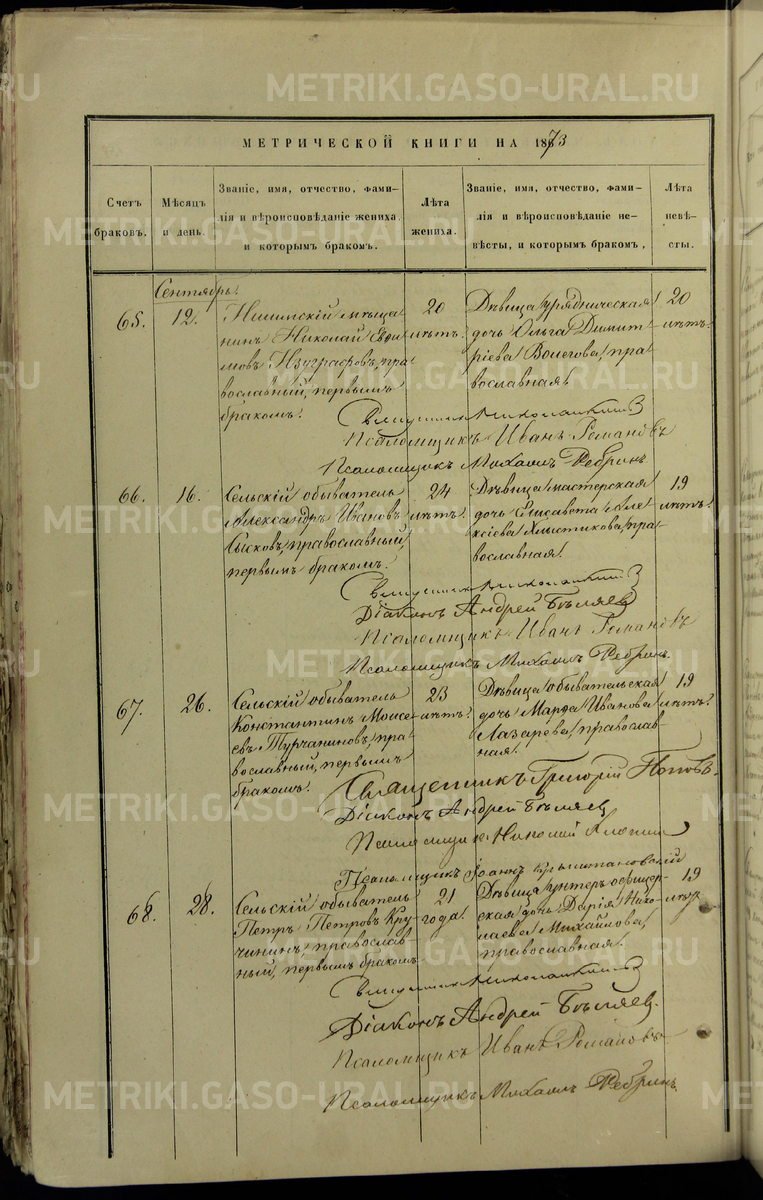 METRIKI.GASO-URAL.RU
МЕТРИЧЕСКОЙ КНИГИ НА 1873
Счетъ браковъ.
Мѣсяцъ и день.
Званіе, имя, отчество, фами-
лія и вѣроисповѣданіе жениха
и которымъ бракомъ.
Лѣта жениха.
Званіе, имя, отчество, фами-
лія и вѣроисповѣданіе не-
вѣсты, и которымъ бракомъ,
Лѣта невѣ-
сты.
Сентябрь.
65.
12.
мѣща
нинъ Николай Ефи
мовъ Изуграфовъ, пра
вославный, первымъ
бракомъ.
20
лѣтъ.
Дѣвица урядническая
дочь Ольга Димит
ріева Вонегова, пра
вославная.
20
лѣтъ.
Псаломщикъ Иванъ Романовъ
Псаломщикъ Михаилъ Ребринъ
66.
16.
Сельскій обыватель
Александръ Ивановъ
Сысковъ, православный,
первымъ бракомъ.
24
лѣтъ.
Дѣвица мастерская
дочь Елисавета Але
ксіева Хлыстикова, пра
вославная.
19
лѣтъ.
Діаконъ Андрей Бѣляев
Псаломщикъ Иванъ Романовъ
Псаломщикъ Михаилъ Ребринъ.
67.
26.
Сельскій обыватель
Константинъ Моисе
евъ Турчаниновъ, пра
вославный, первымъ
бракомъ.
23
лѣтъ.
Дѣвица обывательская
дочь Марфа Иванова
Лазарева, православ
ная.
19
лѣтъ.
Священникъ Григорій Поповъ.
Діаконъ Андрей Бѣляев
Псаломщикъ Николай
Псаломщикъ Іоаннъ
68.
28.
Сельскій обыватель
Петръ Петровъ Кру
чининъ, православ
ный, первымъ бракомъ
21
года.
Дѣвица унтеръ офицер-
ская дочь Дарія Нико-
лаева Михайлова,
православная.
19
лѣтъ
Діаконъ Андрей Бѣляев.
Псаломщикъ Иванъ Романовъ
Псаломщикъ Михаилъ Ребринъ.